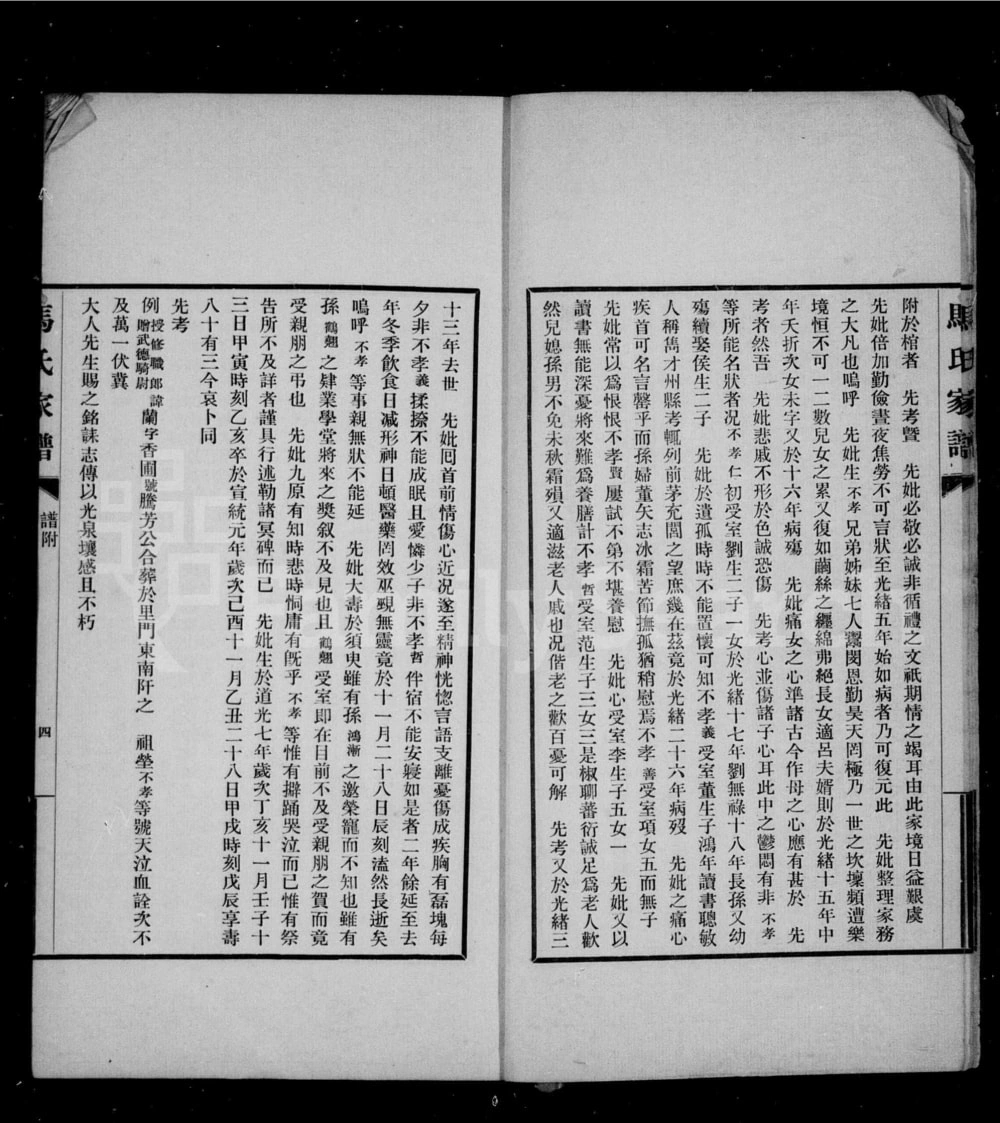 馬氏家譜
附於棺者　先考暨　先妣必敬必誠非循禮之文祇期情之竭耳由此家境日益艱虞
先妣倍加勤儉晝夜焦勞不可言狀至光緒五年始如病者乃可復元此　先妣整理家務
之大凡也嗚呼　先妣生不孝兄弟姊妹七人鬻閔恩勤昊天罔極乃一世之坎壈頻遭樂
境恒不可一二數兒女之累又復如繭絲之纏綿弗絕長女適呂夫婿則於光緒十五年中
年夭折次女未字又於十六年病殤　先妣痛女之心準諸古今作母之心應有甚於　先
考者然吾　先妣悲戚不形於色誠恐傷　先考心並傷諸子心耳此中之鬱悶有非不孝
等所能名狀者况不孝仁初受室劉生二子一女於光緒十七年劉無祿十八年長孫又幼
殤續娶侯生二子　先妣於遺孤時時不能置懷可知不孝義受室董生子鴻年讀書聰敏
人稱雋才州縣考輒列前茅充閭之望庶幾在茲竟於光緒二十六年病歿　先妣之痛心
疾首可名言罄乎而孫婦董矢志冰霜苦節撫孤猶稍慰焉不孝善受室項女五而無子
先妣常以爲恨恨不孝賣屢試不第不堪養慰　先妣心受室李生子五女一　先妣又以
讀書無能深憂將來難爲養膳計不孝哲受室范生子三女三是椒聊蕃衍誠足爲老人歡
然兒媳孫男不免未秋霜殞又適滋老人戚也况偕老之歡百憂可解　先考又於光緒三
十三年去世　先妣囘首前情傷心近况遂至精神恍惚言語支離憂傷成疾胸有磊塊每
夕非不孝義揉捺不能成眠且愛憐少子非不孝哲伴宿不能安寢如是者二年餘延至去
年冬季飲食日减形神日頓醫藥罔效巫覡無靈竟於十一月二十八日辰刻溘然長逝矣
嗚呼不孝等事親無狀不能延　先妣大壽於須臾雖有孫鴻漸之邀榮寵而不知也雖有
孫鶴翹之肄業學堂將來之獎叙不及見也且鶴翹受室即在目前不及受親朋之賀而竟
受親朋之弔也　先妣九原有知時悲時恫庸有旣乎不孝等惟有擗踊哭泣而已惟有祭
告所不及詳者謹具行述勒諸冥碑而已　先妣生於道光七年歲次丁亥十一月壬子十
三日甲寅時刻乙亥卒於宣統元年歲次己酉十一月乙丑二十八日甲戌時刻戊辰享壽
八十有三今哀卜同
先考
例授修職郎贈武德騎尉諱蘭字香圃號騰芳公合葬於里門東南阡之　祖塋不孝等號天泣血詮次不
及萬一伏冀
大人先生賜之銘誄志傳以光泉壤感且不朽
馬氏家譜
譜附
四